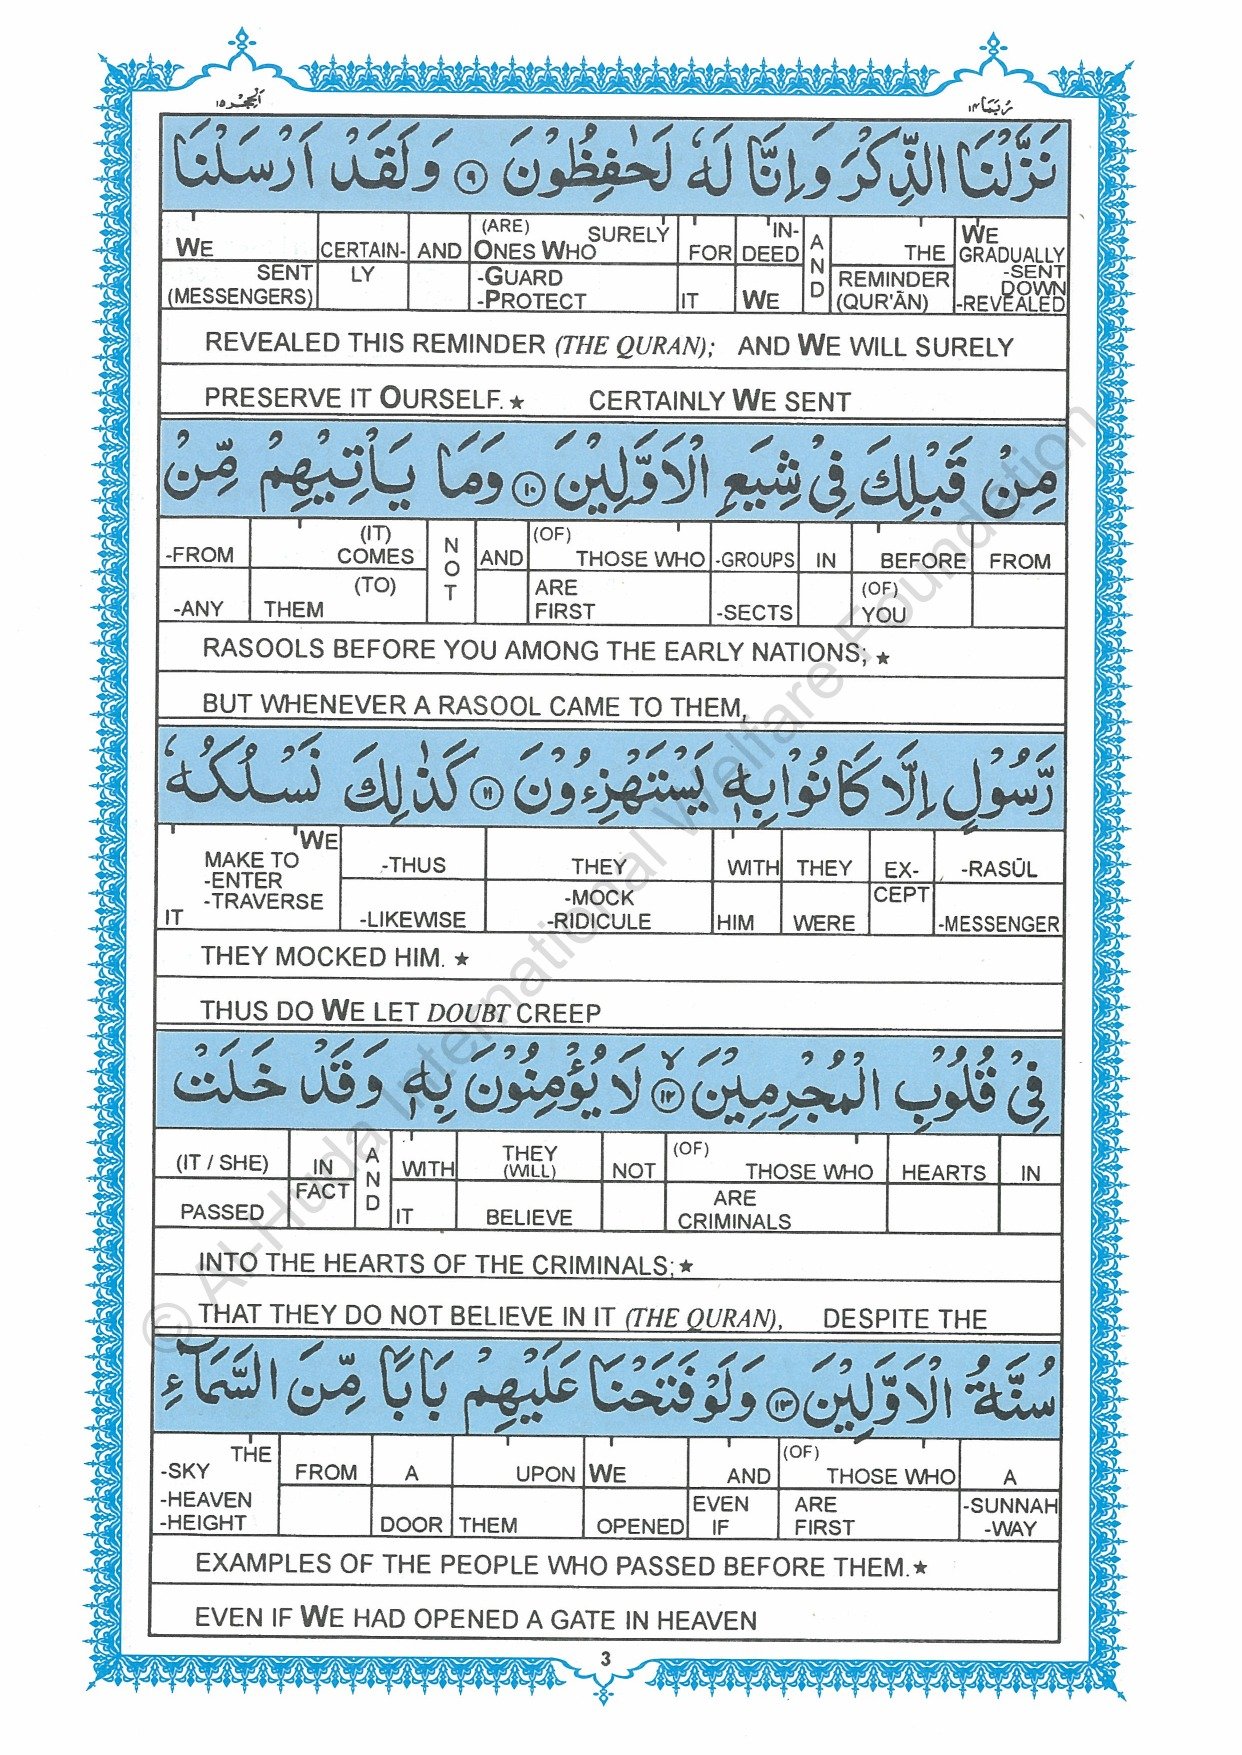 اَلْحِجْر ١٥
رُبَمَا ١٤
نَزَّلْنَا الذِّكْرَ وَاِنَّا لَهٗ لَحٰفِظُوْنَ ٩ وَلَقَدْ اَرْسَلْنَا
WE SENT (MESSENGERS) CERTAIN-LY AND (ARE) SURELY ONES WHO -GUARD -PROTECT FOR IT IN-DEED WE AND THE REMINDER (QUR'ĀN) WE GRADUALLY -SENT DOWN -REVEALED
REVEALED THIS REMINDER (THE QURAN); AND WE WILL SURELY
PRESERVE IT OURSELF.★ CERTAINLY WE SENT
مِنْ قَبْلِكَ فِيْ شِيَعِ الْاَوَّلِيْنَ ١٠ وَمَا يَاْتِيْهِمْ مِّنْ
-FROM -ANY (IT) COMES (TO) THEM NOT AND (OF) THOSE WHO ARE FIRST -GROUPS -SECTS IN BEFORE (OF) YOU FROM
RASOOLS BEFORE YOU AMONG THE EARLY NATIONS;★
BUT WHENEVER A RASOOL CAME TO THEM,
رَّسُوْلٍ اِلَّا كَانُوْا بِهٖ يَسْتَهْزِءُوْنَ ١١ كَذٰلِكَ نَسْلُكُهٗ
WE MAKE TO -ENTER -TRAVERSE IT -THUS -LIKEWISE THEY -MOCK -RIDICULE WITH HIM THEY WERE EX-CEPT -RASŪL -MESSENGER
THEY MOCKED HIM. ★
THUS DO WE LET DOUBT CREEP
فِيْ قُلُوْبِ الْمُجْرِمِيْنَ ١٢ لَا يُؤْمِنُوْنَ بِهٖ وَقَدْ خَلَتْ
(IT / SHE) PASSED IN FACT AND WITH IT THEY (WILL) BELIEVE NOT (OF) THOSE WHO ARE CRIMINALS HEARTS IN
INTO THE HEARTS OF THE CRIMINALS;★
THAT THEY DO NOT BELIEVE IN IT (THE QURAN), DESPITE THE
سُنَّةُ الْاَوَّلِيْنَ ١٣ وَلَوْ فَتَحْنَا عَلَيْهِمْ بَابًا مِّنَ السَّمَآءِ
THE -SKY -HEAVEN -HEIGHT FROM A DOOR UPON THEM WE OPENED AND EVEN IF (OF) THOSE WHO ARE FIRST A -SUNNAH -WAY
EXAMPLES OF THE PEOPLE WHO PASSED BEFORE THEM.★
EVEN IF WE HAD OPENED A GATE IN HEAVEN
3
© Al-Huda International Welfare Foundation